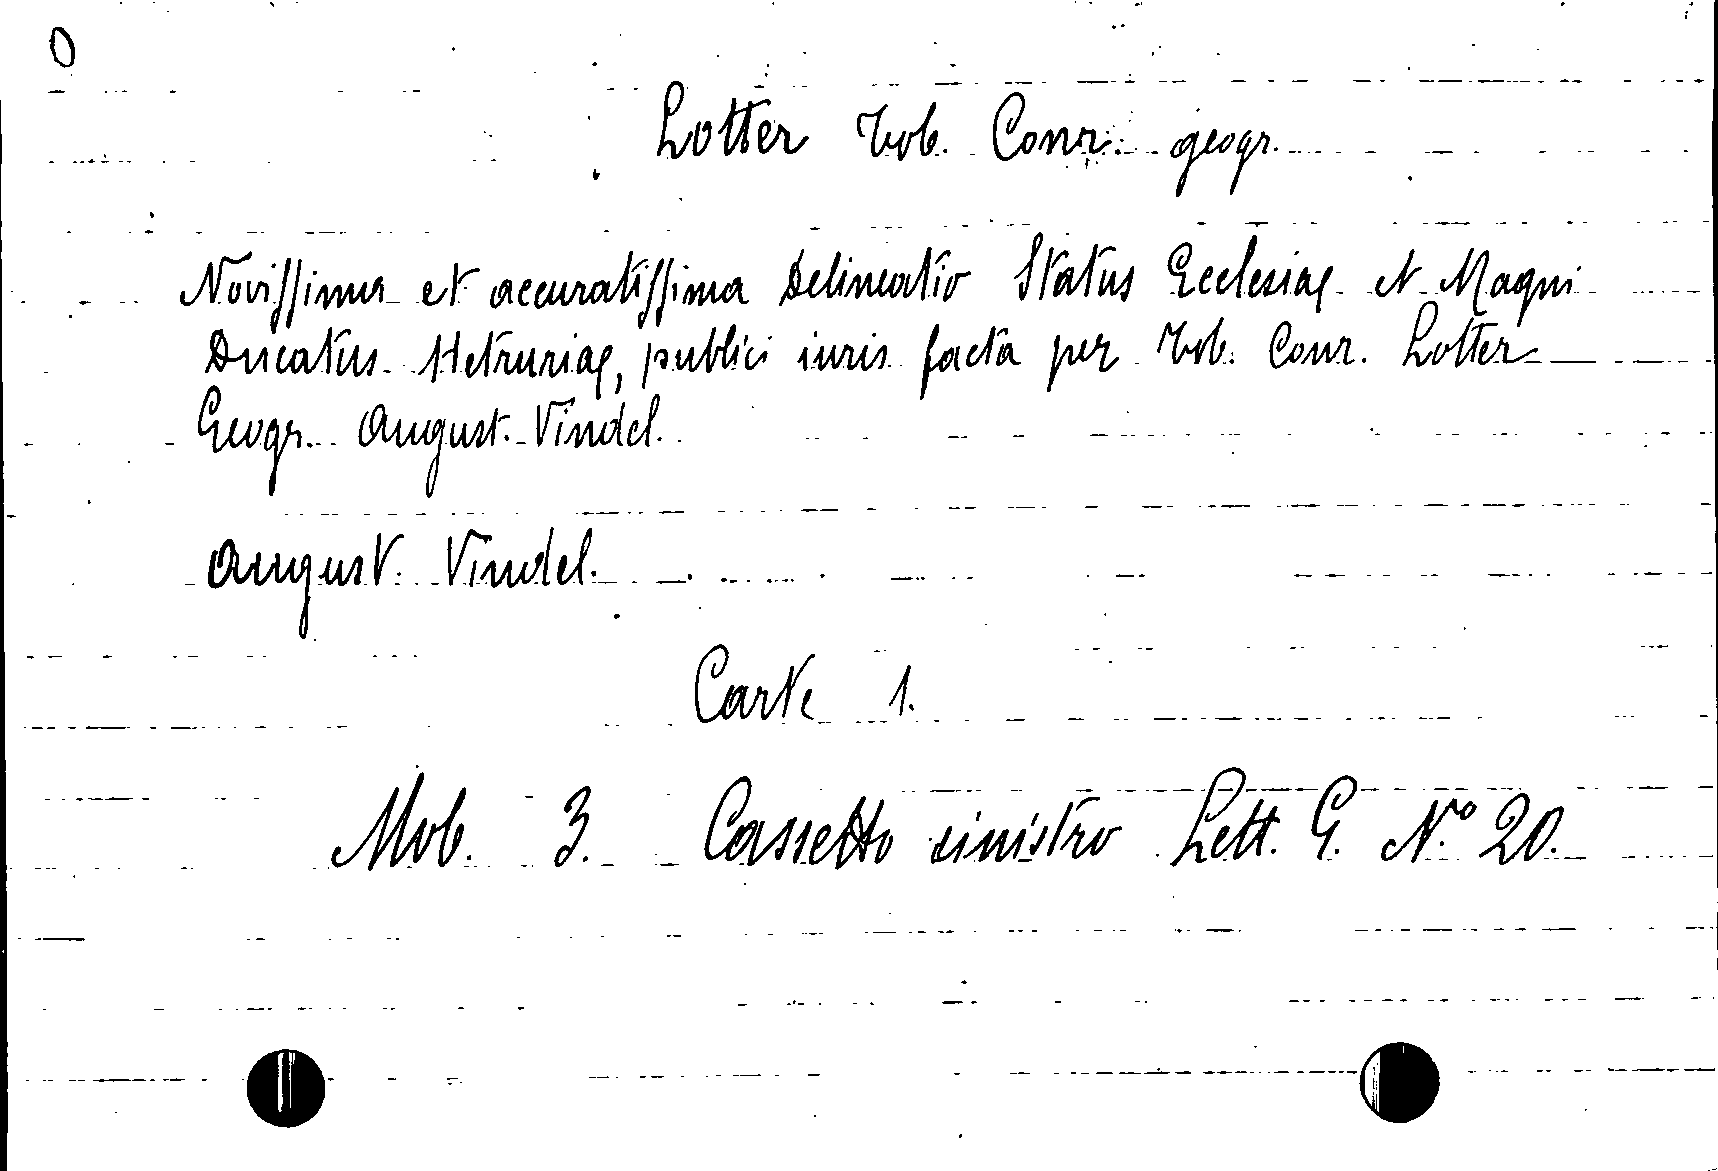 0
Lotter Tob. Conr. geogr.
Novissima et accuratissima Delineatio Status Ecclesiae et Magni
Ducatus Hetruriae, publici iuris facta per Tob. Conr. Lotter
Geogr. August. Vindel.
August. Vindel.
Carte 1.
Mob. 3. Cassetto sinistro Lett. G. N.º 20.